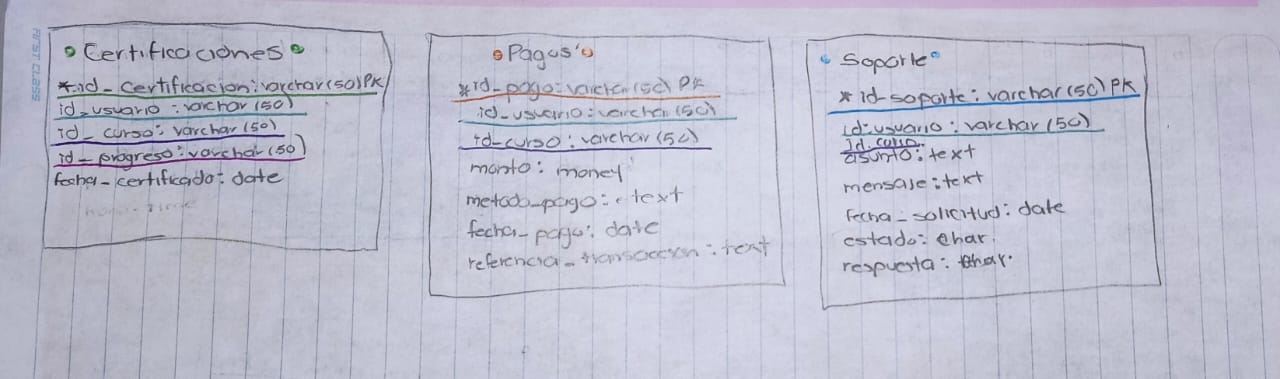 FIRST CLASS
Certificaciones
*id_certificacion: varchar(50)PK
id_usuario: varchar(50)
id_curso: varchar(50)
id_progreso: varchar(50)
fecha_certificado: date
Pagos
*id_pago: varchar(50) PK
id_usuario: varchar(50)
id_curso: varchar(50)
monto: money
metodo_pago: text
fecha_pago: date
referencia_transaccion: text
Soporte
* id_soporte: varchar(50) PK
id_usuario: varchar(50)
id_curso
asunto: text
mensaje: text
fecha_solicitud: date
estado: char.
respuesta: char.